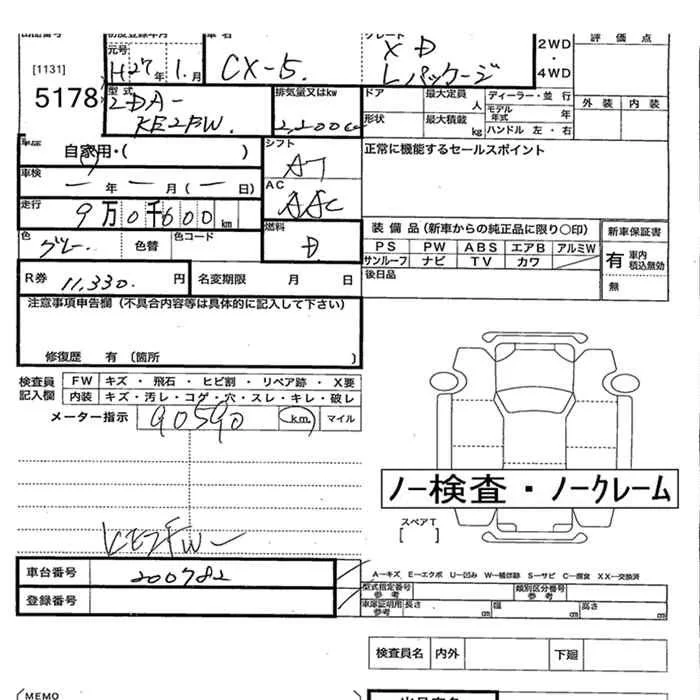 初度登録年月 車名 グレード
元号 H27年 1.月 CX-5. XD Lパッケージ
2WD ・ 4WD
評価点
外装 内装
[1131]
5178
型式 LDA-KE2FW.
排気量又はkw 2,200cc
ドア 最大定員 人 ディーラー・並行
モデル年式 年
形状 最大積載 kg ハンドル 左・右
自家用・( )
シフト AT
正常に機能するセールスポイント
車検 ー年 ー月(ー日)
AC AAC
走行 9万0千600km
燃料 D
装備品(新車からの純正品に限り〇印) 新車保証書
色 グレー. 色替 色コード
PS PW ABS エアB アルミW
サンルーフ ナビ TV カワ
有 車内積込無効
無
R券 11,330.円 名変期限 月 日
後日品
注意事項申告欄(不具合内容等は具体的に記入して下さい)
修復歴 有(箇所 )
検査員記入欄 FW キズ・飛石・ヒビ割・リペア跡・X要
内装 キズ・汚レ・コゲ・穴・スレ・キレ・破レ
メーター指示 90590 km マイル
ノー検査・ノークレーム
スペアT
[ ]
KE2FW-
車台番号 200782
登録番号
A-キズ E-エクボ U-凹み W-補修跡 S-サビ C-腐食 XX-交換済
型式指定番号参考 類別区分番号参考
車庫証明用参考 長さ cm 幅 cm 高さ cm
検査員名 内外 下廻
(MEMO